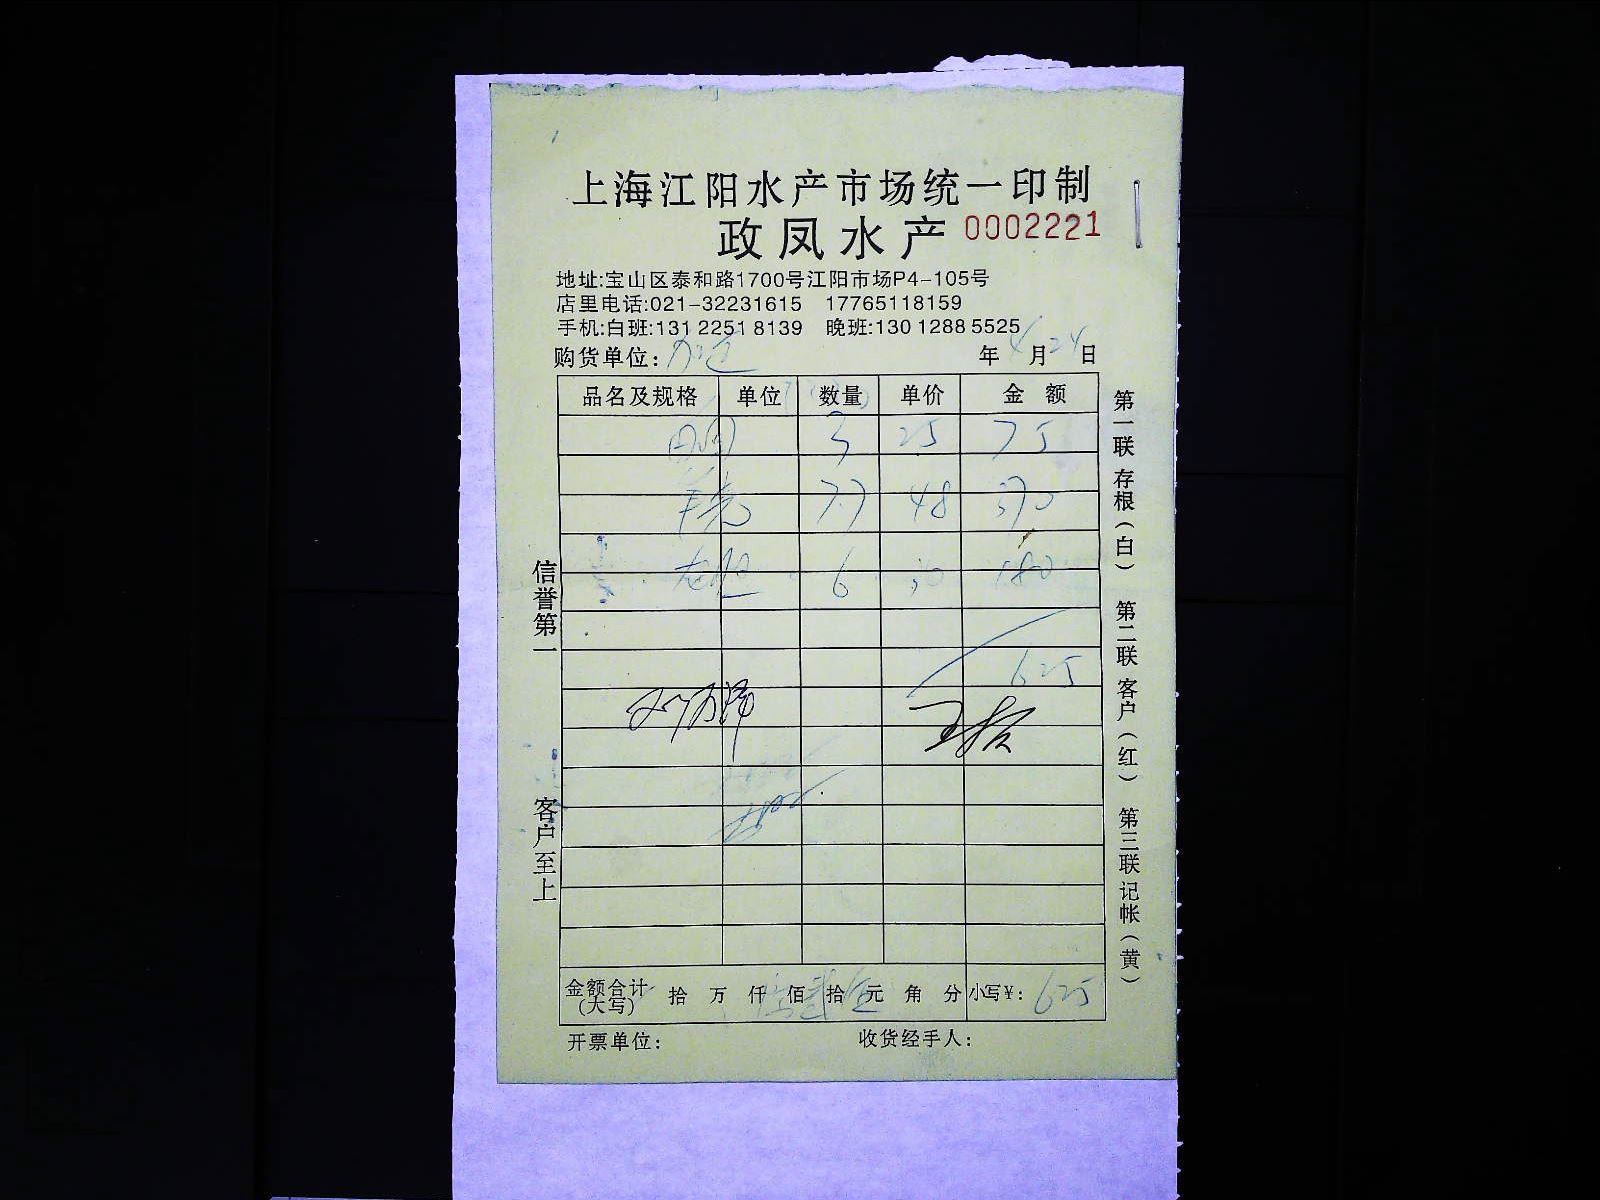 上海江阳水产市场统一印制
政凤水产 0002221
地址:宝山区泰和路1700号江阳市场P4-105号
店里电话:021-32231615 17765118159
手机:白班:131 2251 8139 晚班:130 1288 5525
购货单位: 年 4 月 24 日
品名及规格 单位 数量 单价 金额
3 25 75
7.7 48 370
6 30 180
625
金额合计(大写) 拾 万 仟 佰 拾 元 角 分 小写¥: 625
开票单位: 收货经手人:
信誉第一 客户至上
第一联 存根(白) 第二联 客户(红) 第三联 记帐(黄)